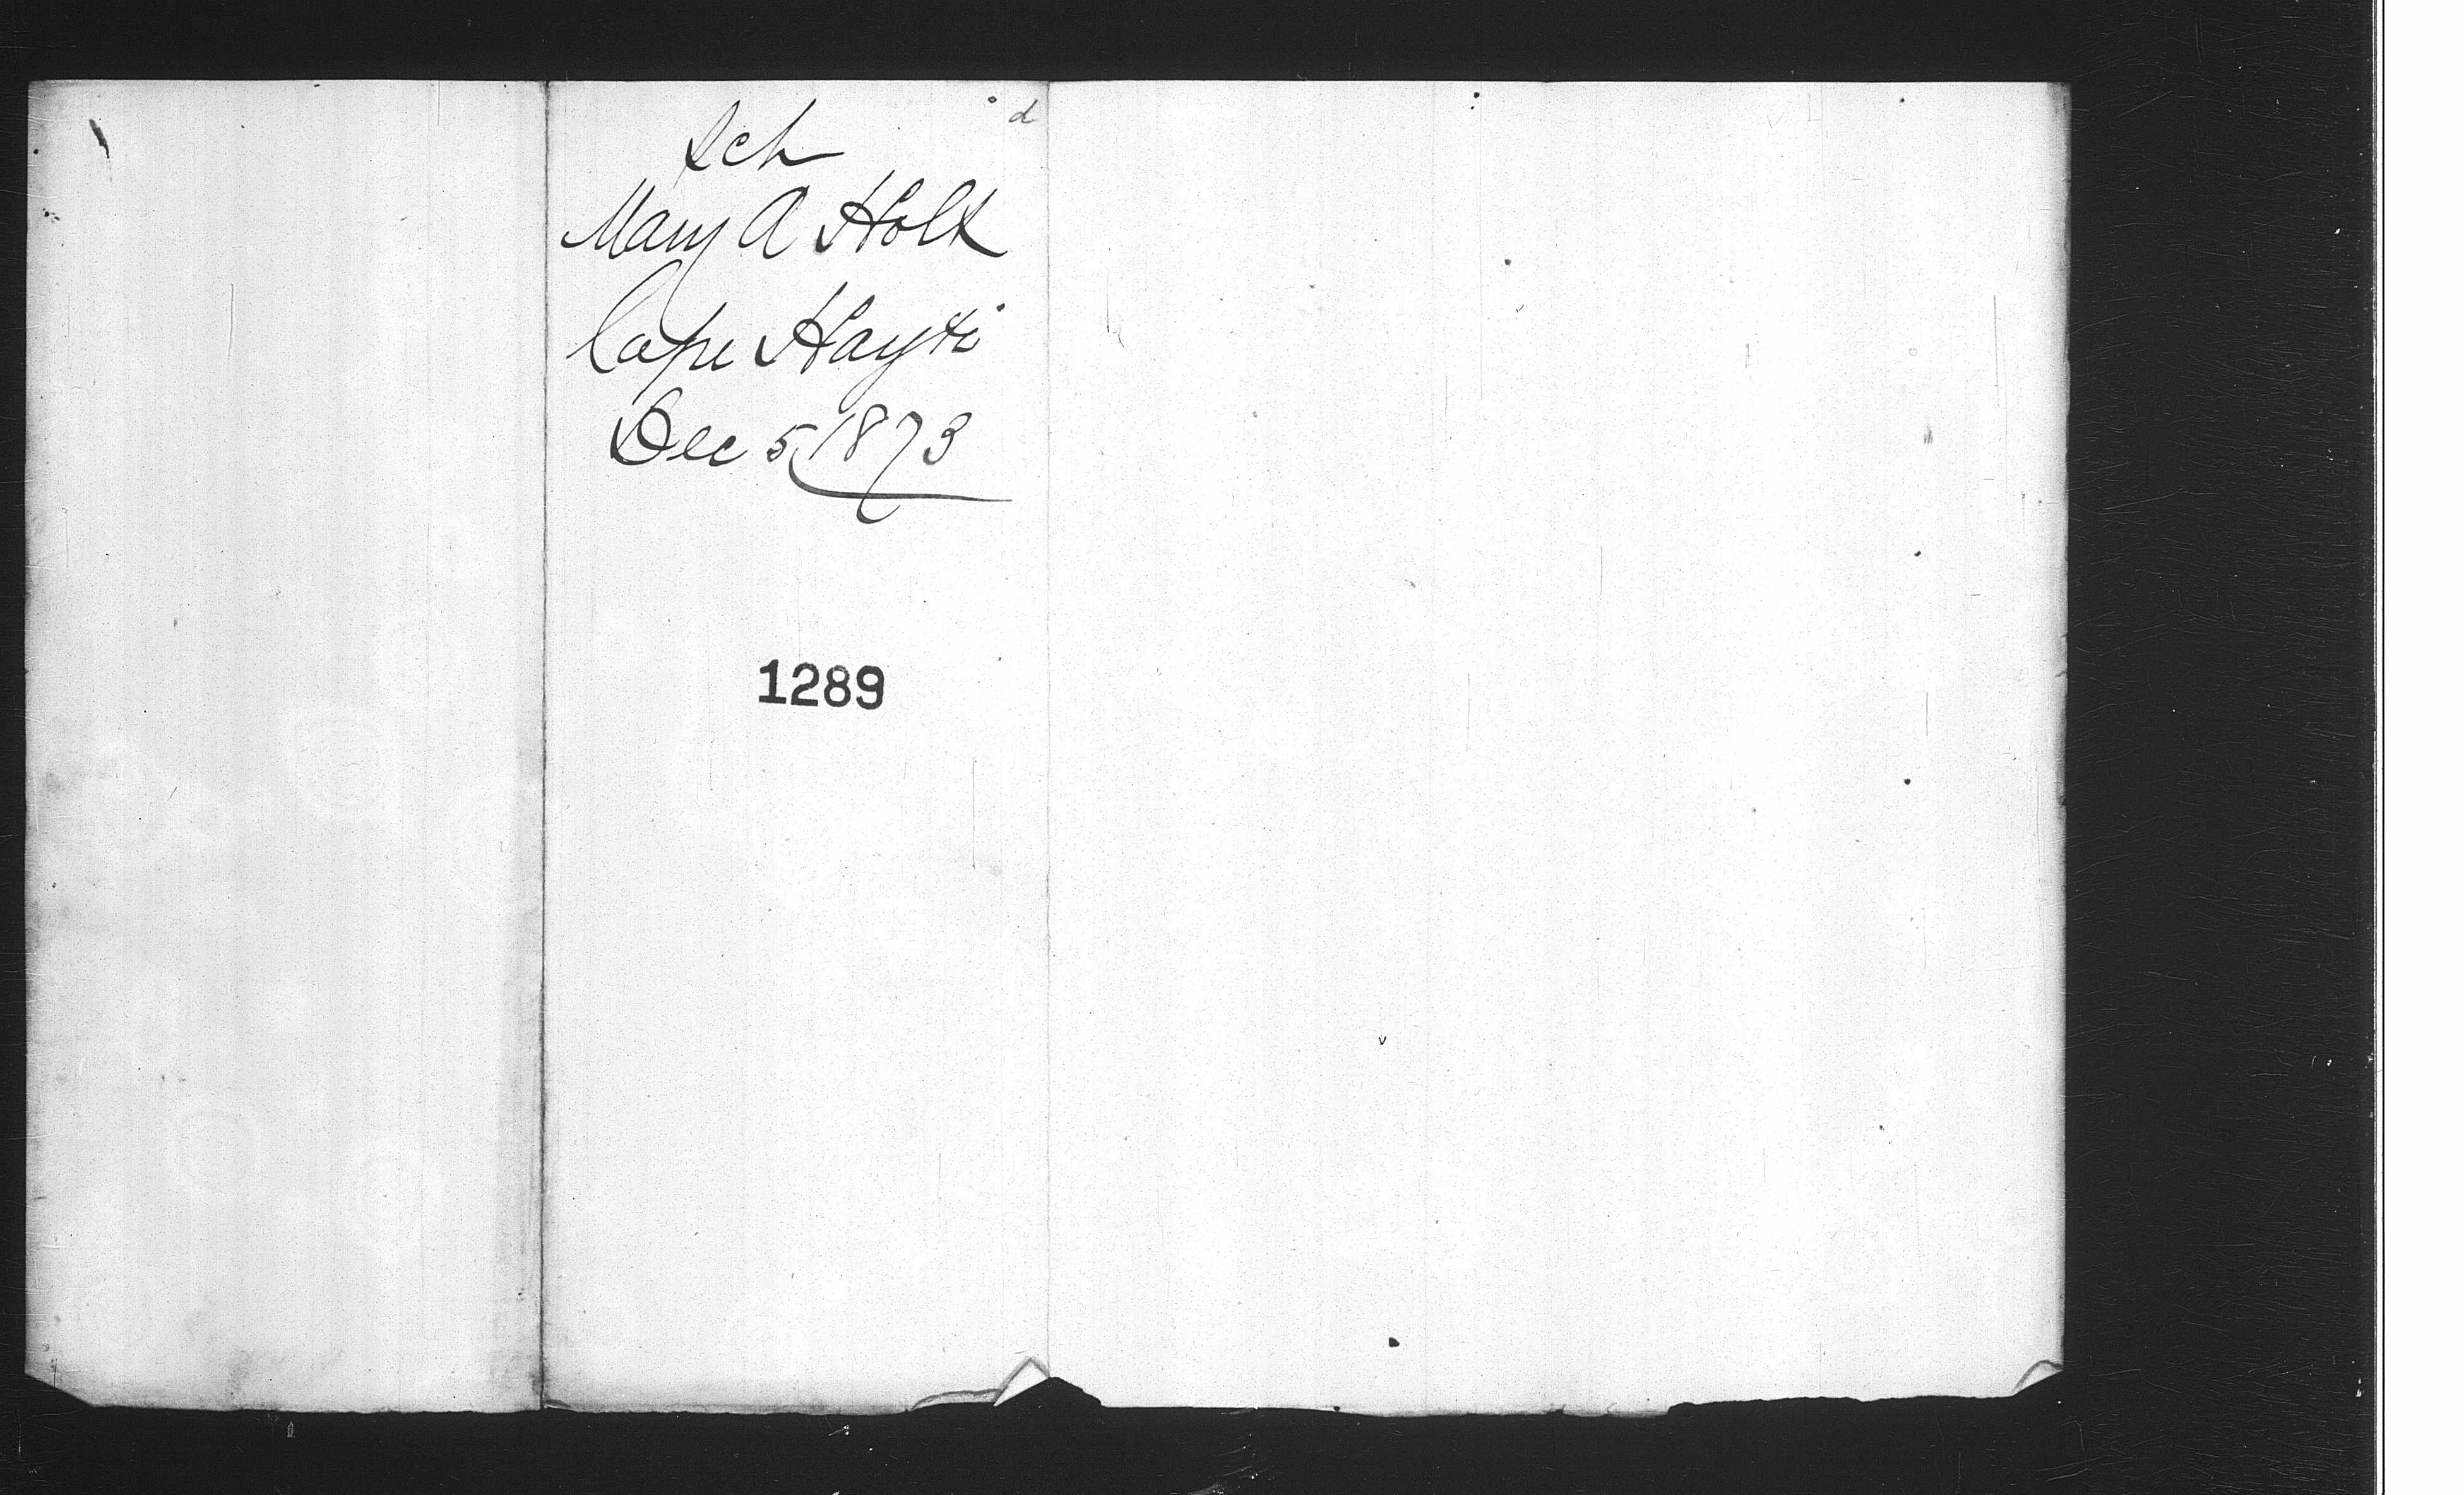 d
Sch
Mary A Holt
Cape Hayti
Dec 5 1873
1289